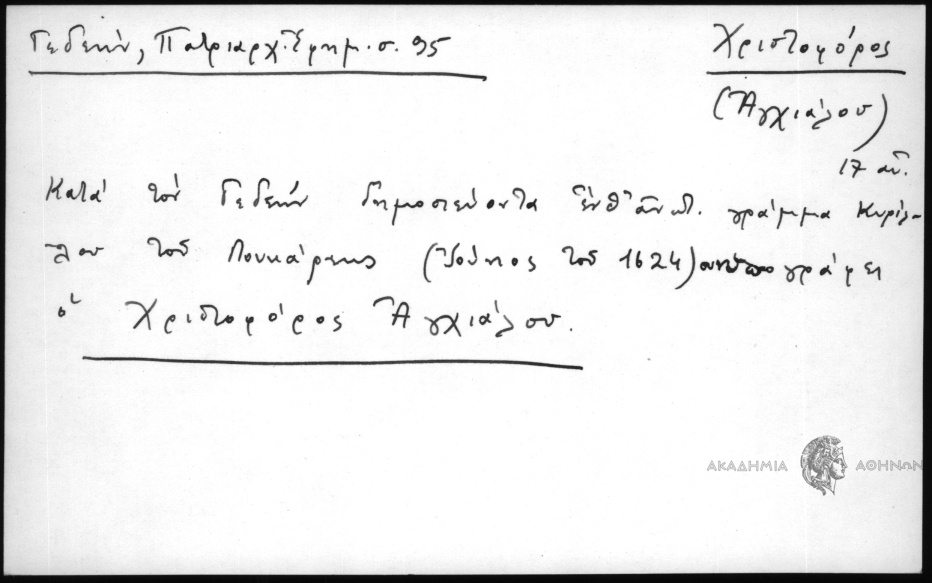 Γεδεών, Πατριαρχ. Ἐφημ. σ. 95
Χριστοφόρος
(Ἀγχιάλου)
17 αἰ.
Κατά τόν Γεδεών δημοσιεύοντα ἐνθ' ἀνωτ. γράμμα Κυρίλ-
λου τοῦ Λουκάρεως (Ἰούνιος τοῦ 1624) συνυπογράφει
ὁ Χριστοφόρος Ἀγχιάλου.
ΑΚΑΔΗΜΙΑ ΑΘΗΝΩΝ